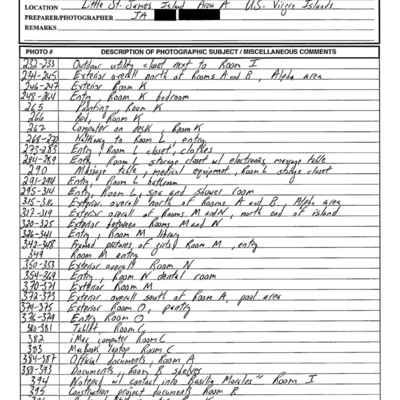 LOCATION Little St. James Island Area A U.S. Virgin Islands
PREPARER/PHOTOGRAPHER IA
REMARKS
PHOTO # DESCRIPTION OF PHOTOGRAPHIC SUBJECT / MISCELLANEOUS COMMENTS
232-233 Outdoor utility closet next to Room I
244-245 Exterior overall north of Rooms A and B, Alpha area
246-247 Exterior Room K
248-264 Entry, Room K bedroom
265 Painting, Room K
266 Bed, Room K
267 Computer on desk, Room K
Hallway to Room L, entry
273-283 Entry, Room L closet, clothes
284-289 Entry, Room L storage closet w/ electronics, massage table
290 Massage table, medical equipment, Room L storage closet
291-294 Entry, Room L bathroom
295-314 Entry, Room L, spa and shower room
315-316 Exterior overall north of Rooms A and B, Alpha area
317-319 Exterior overall of Rooms M and N, north end of island
320-325 Exterior between Rooms M and N
326-341 Entry, Room M, library
342-348 Framed pictures of girls Room M, entry
349 Room M entry
350-353 Exterior overall Room N
354-369 Entry, Room N dental room
370-371 Exterior Room M
372-373 Exterior overall south of Room A, pool area
374-375 Exterior Room O, pantry
376-379 Entry Room O
380-381 Tablet, Room C
382 iMac computer Room C
383 Macbook laptop Room C
384-387 Official documents, Room A
Documents, Room B shelves
394 w/ contact info Morales" Room I
395 Construction project documents Room B